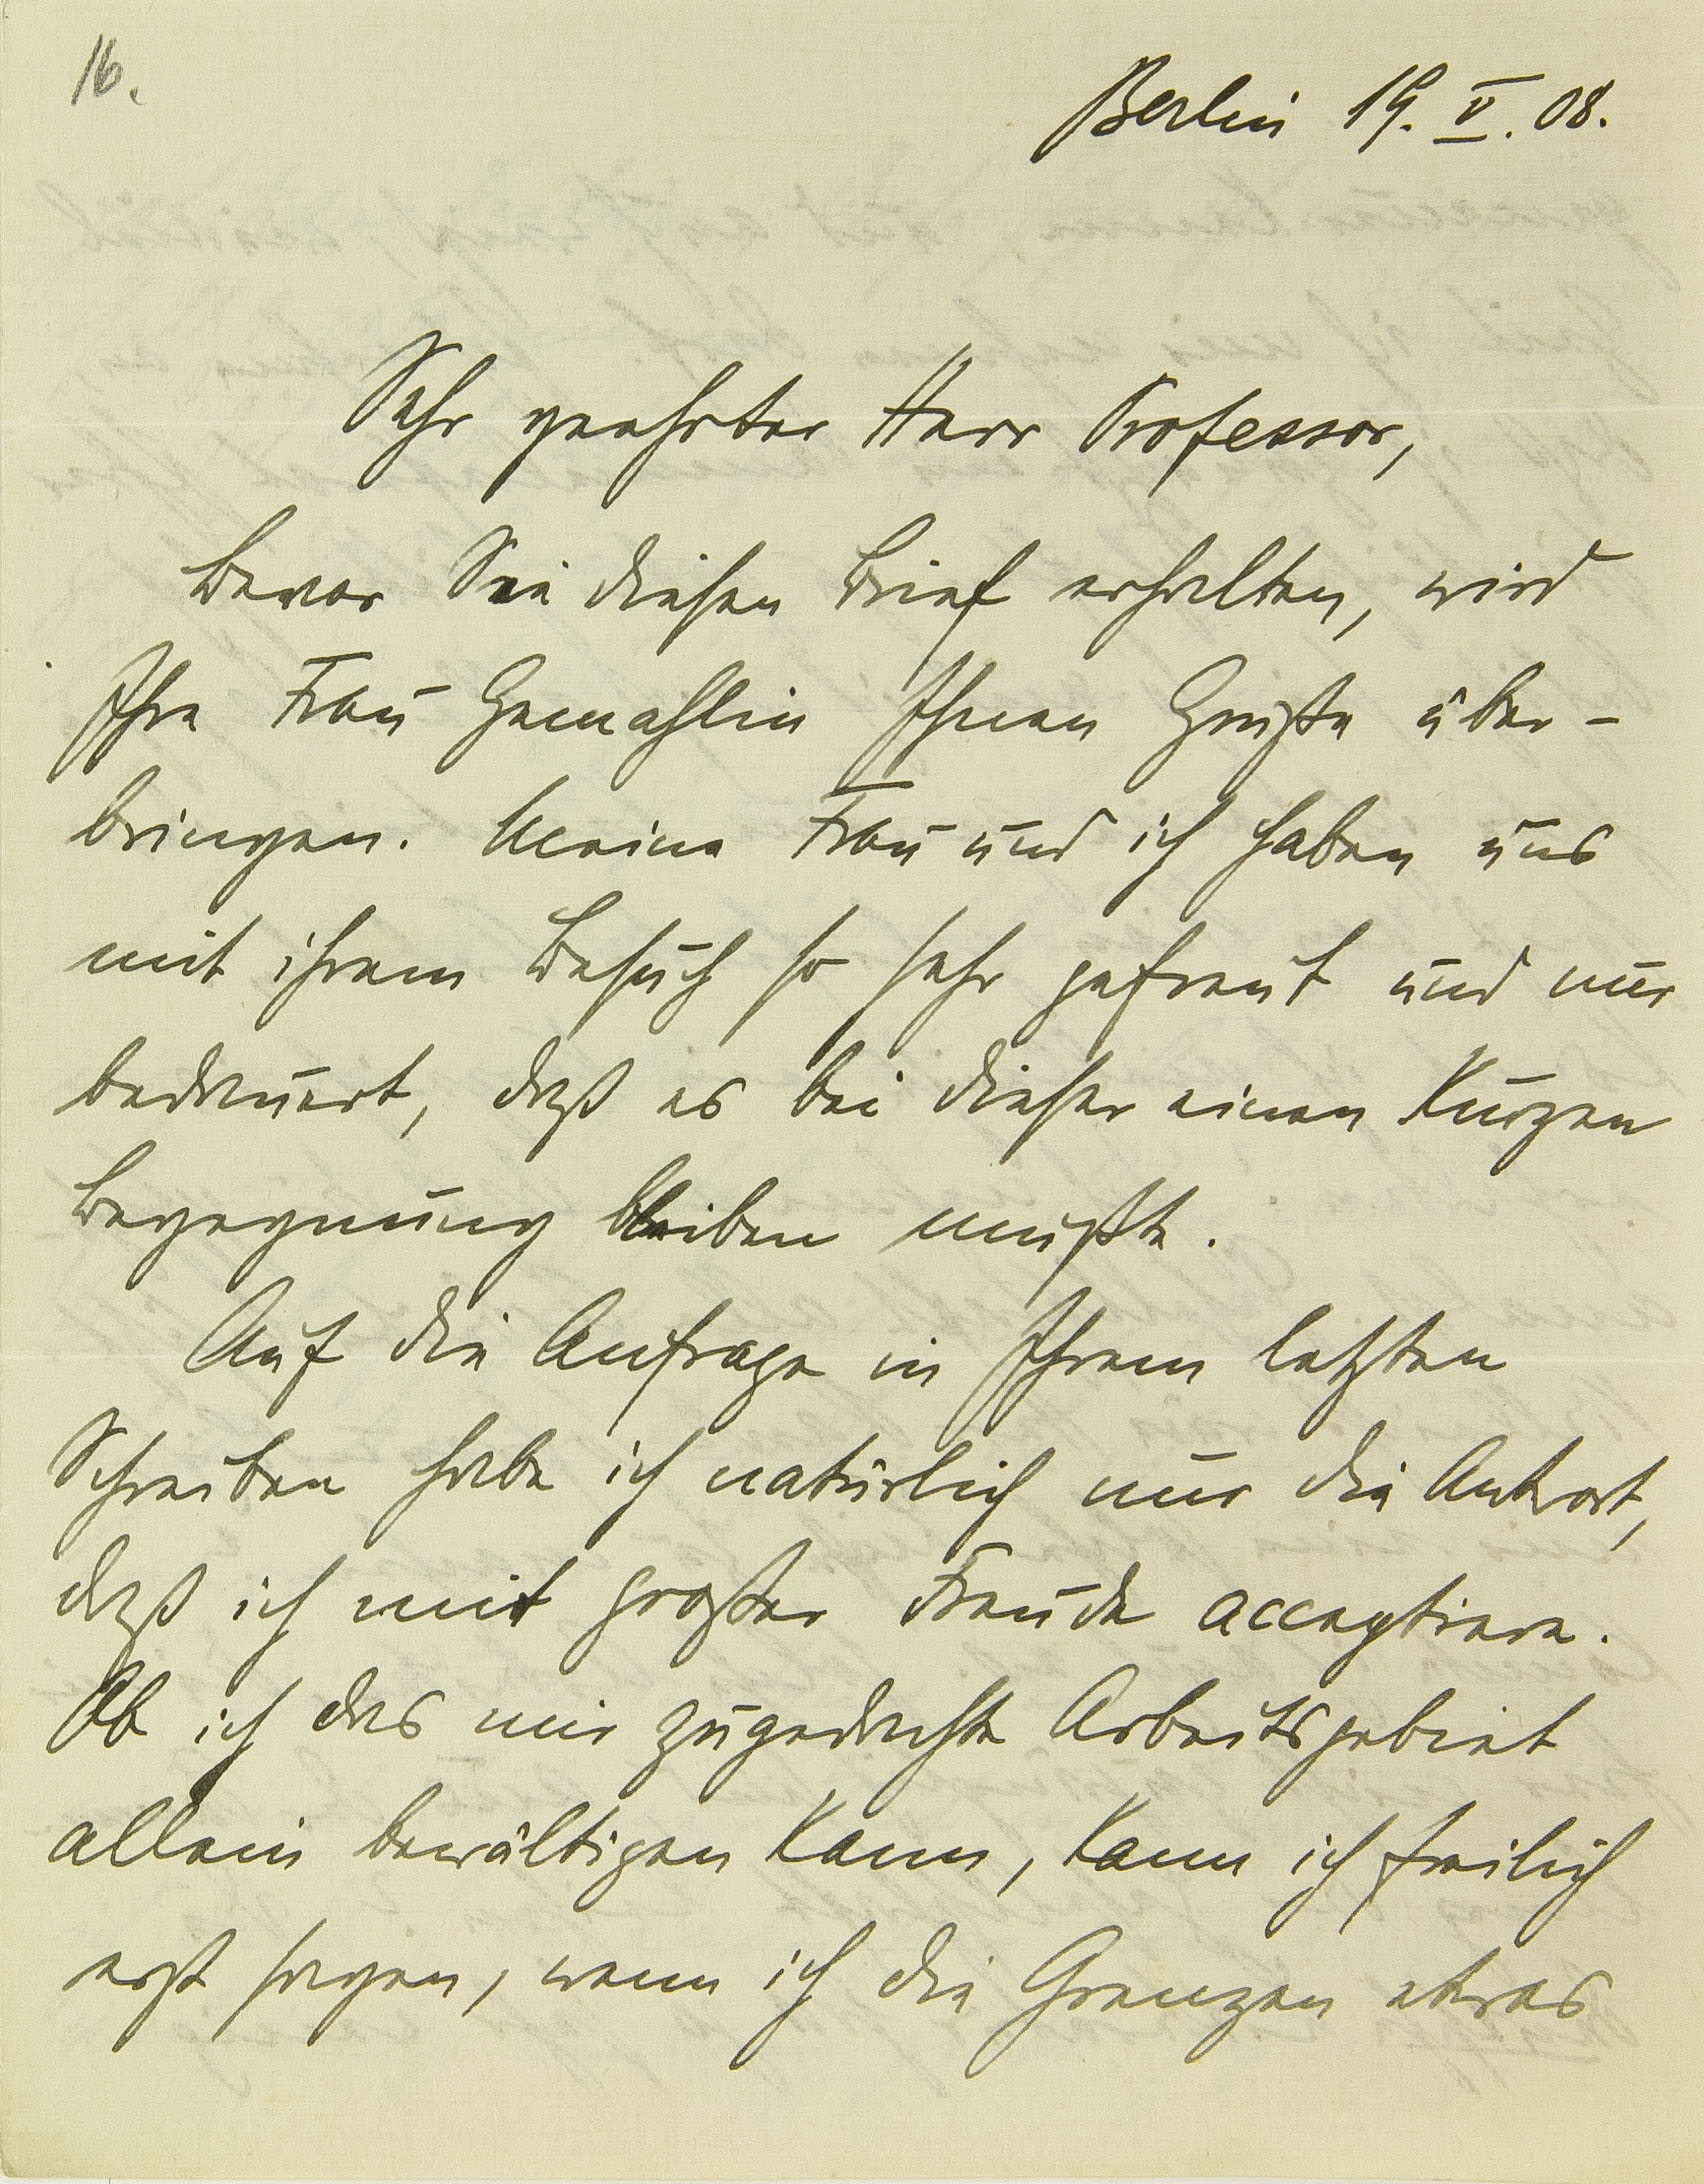 16.
Berlin 19. V. 08.
Sehr geehrter Herr Professor,
Bevor Sie diesen Brief erhalten, wird
Ihre Frau Gemahlin Ihnen Grüße über-
bringen. Meine Frau und ich haben uns
mit ihrem Besuch so sehr gefreut und nur
bedauert, daß es bei dieser einen kurzen
Begegnung bleiben mußte.
Auf die Anfrage in Ihrem letzten
Schreiben habe ich natürlich nur die Antwort,
daß ich mit großer Freude acceptiere.
Ob ich das mir zugedachte Arbeitsgebiet
allein bewältigen kann, kann ich freilich
erst sagen, wenn ich die Grenzen etwas